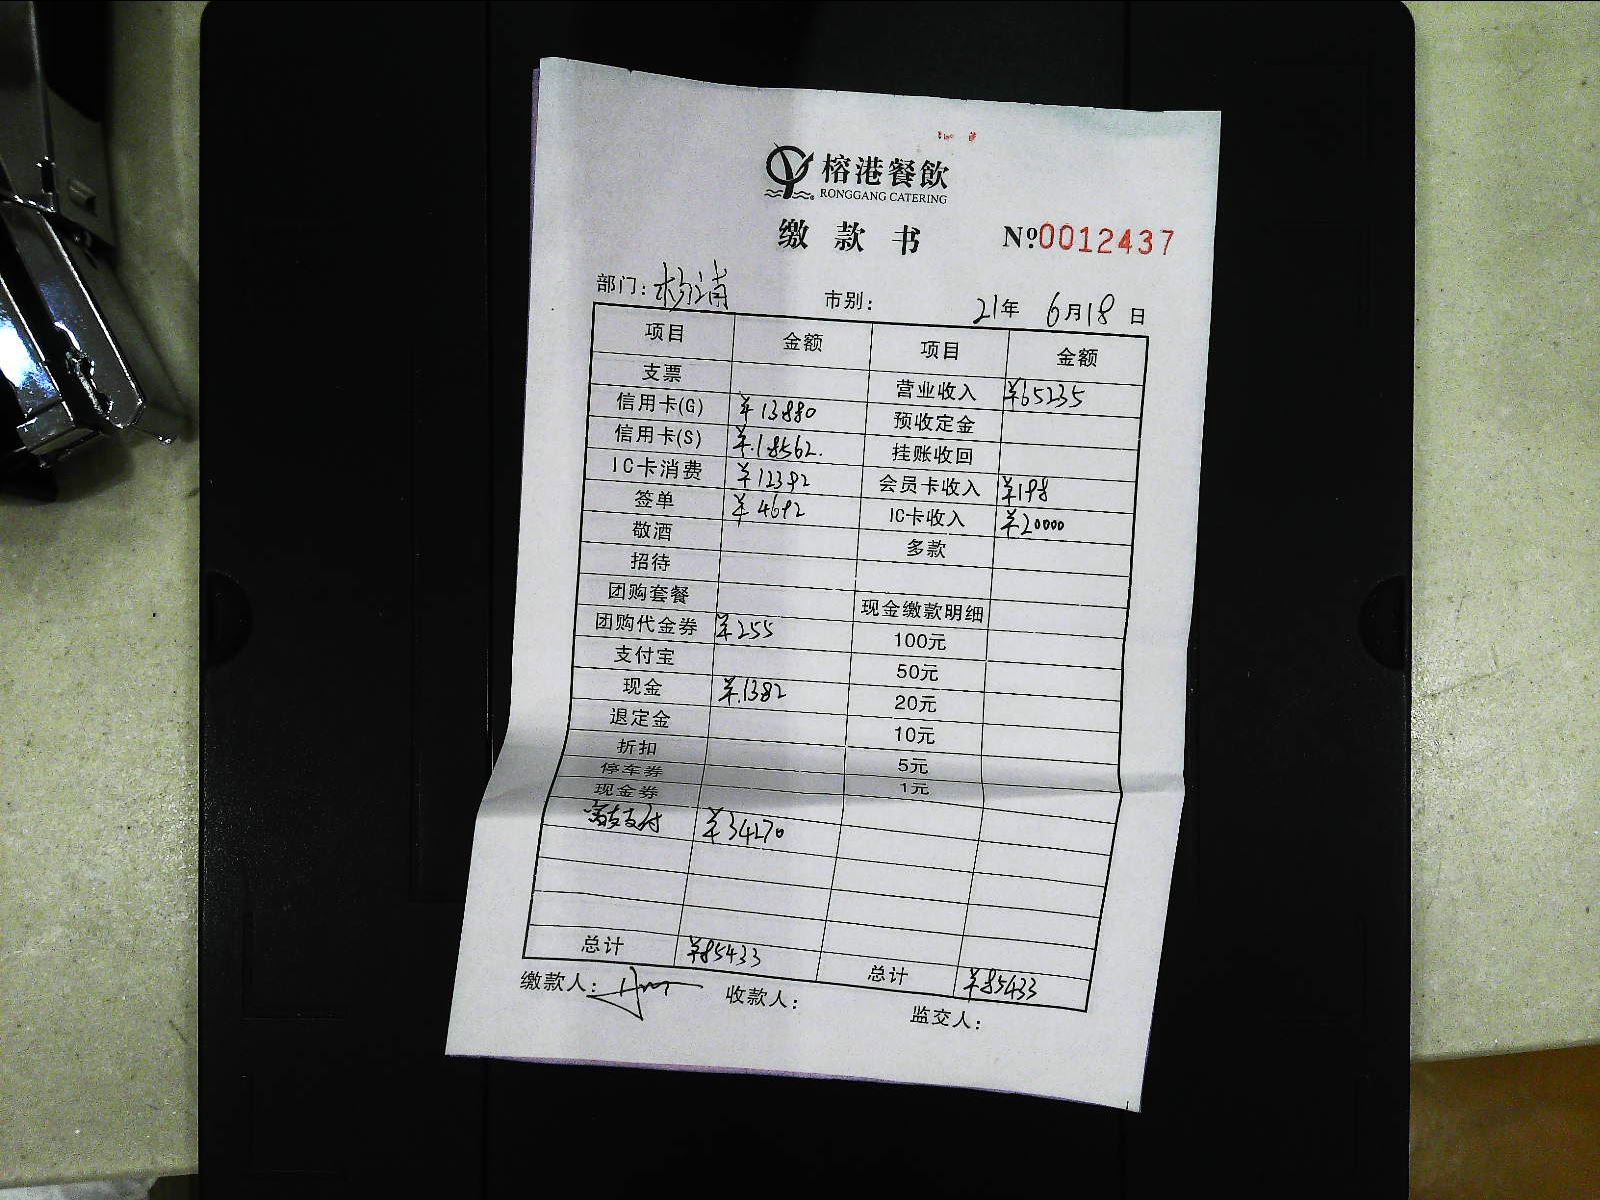 榕港餐飲
RONGGANG CATERING
缴款书 №0012437
部门: 杨浦 市别: 21年 6月18日
项目 金额 项目 金额
支票 营业收入 ¥65235
信用卡(G) ¥13880 预收定金
信用卡(S) ¥18562. 挂账收回
IC卡消费 ¥12392 会员卡收入 ¥198
签单 ¥4692 IC卡收入 ¥20000
敬酒 多款
招待
团购套餐 现金缴款明细
团购代金券 ¥255 100元
支付宝 50元
现金 ¥1382 20元
退定金 10元
折扣 5元
停车券 1元
现金券
支付 ¥34270
总计 ¥85433 总计 ¥85433
缴款人: 收款人: 监交人: